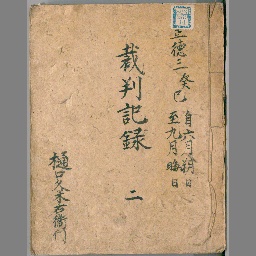 正徳三癸巳
自六月朔日
至九月晦日
裁判記録
二
樋口久米右衛門